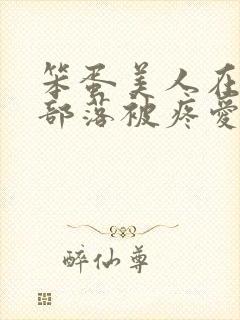 笨蛋美人在
部落被疼爱
醉仙尊